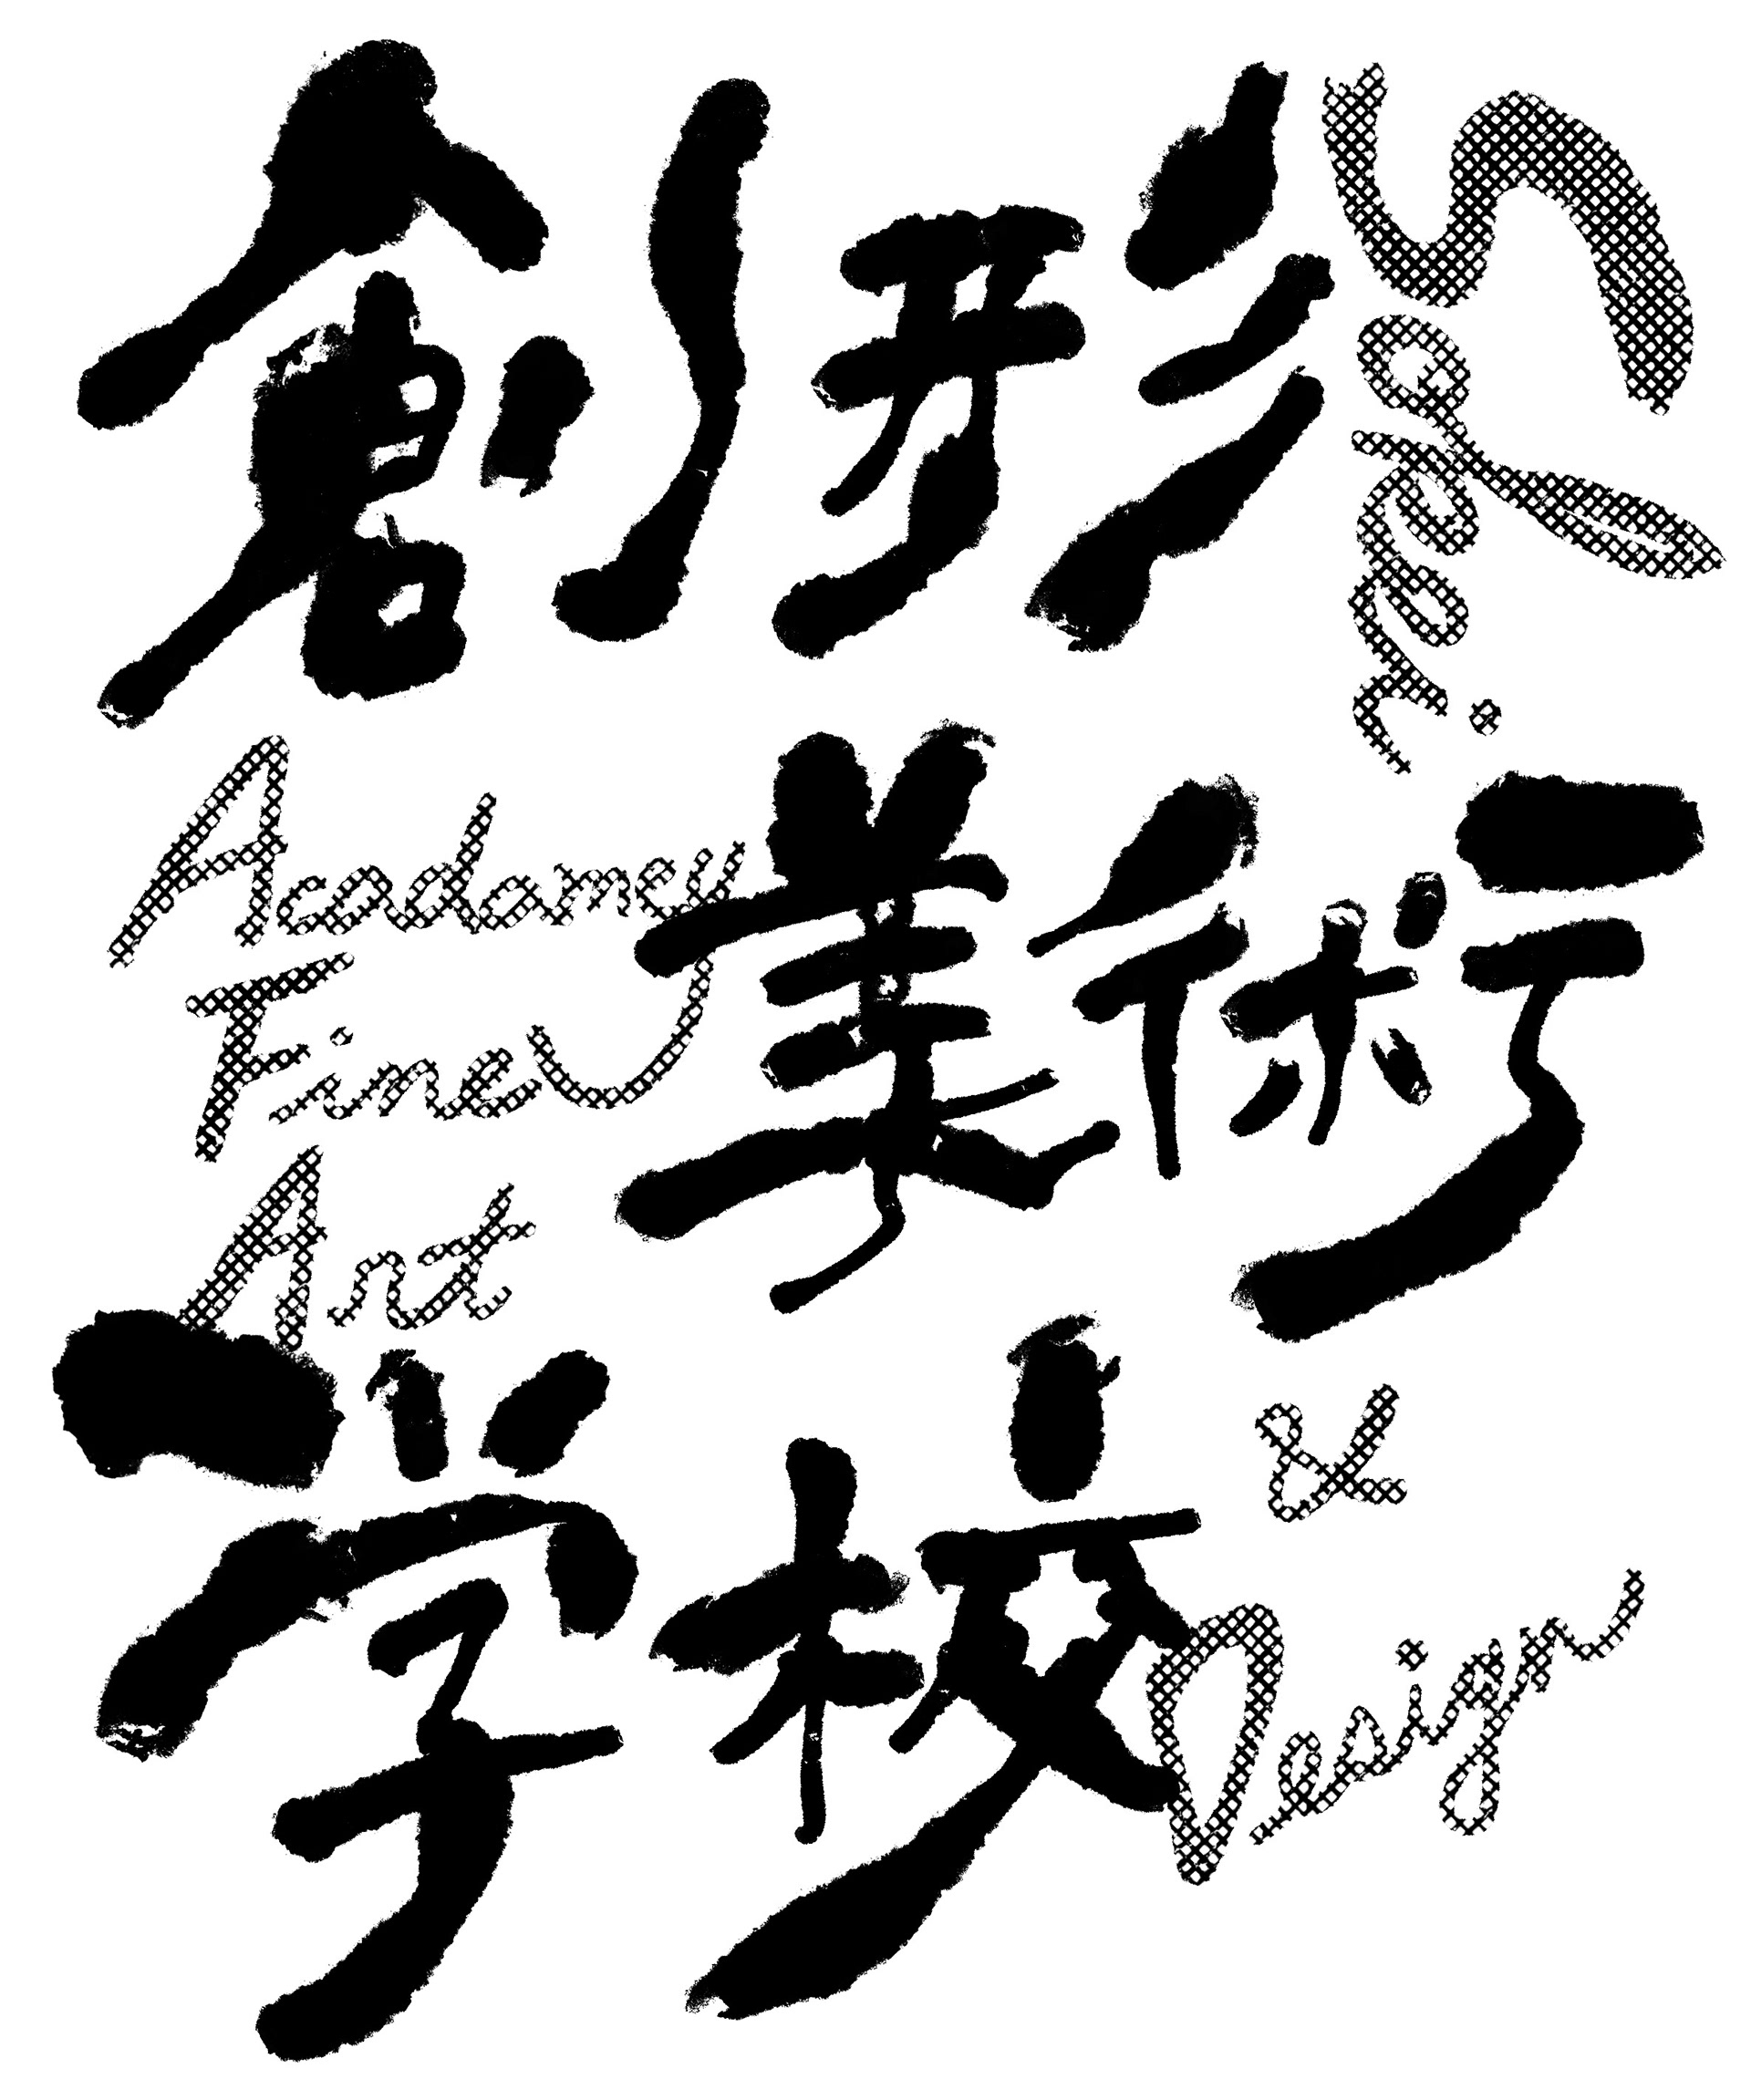 創形
Sokei
美術
Acadamey
Fine
Art
学校
&
Design